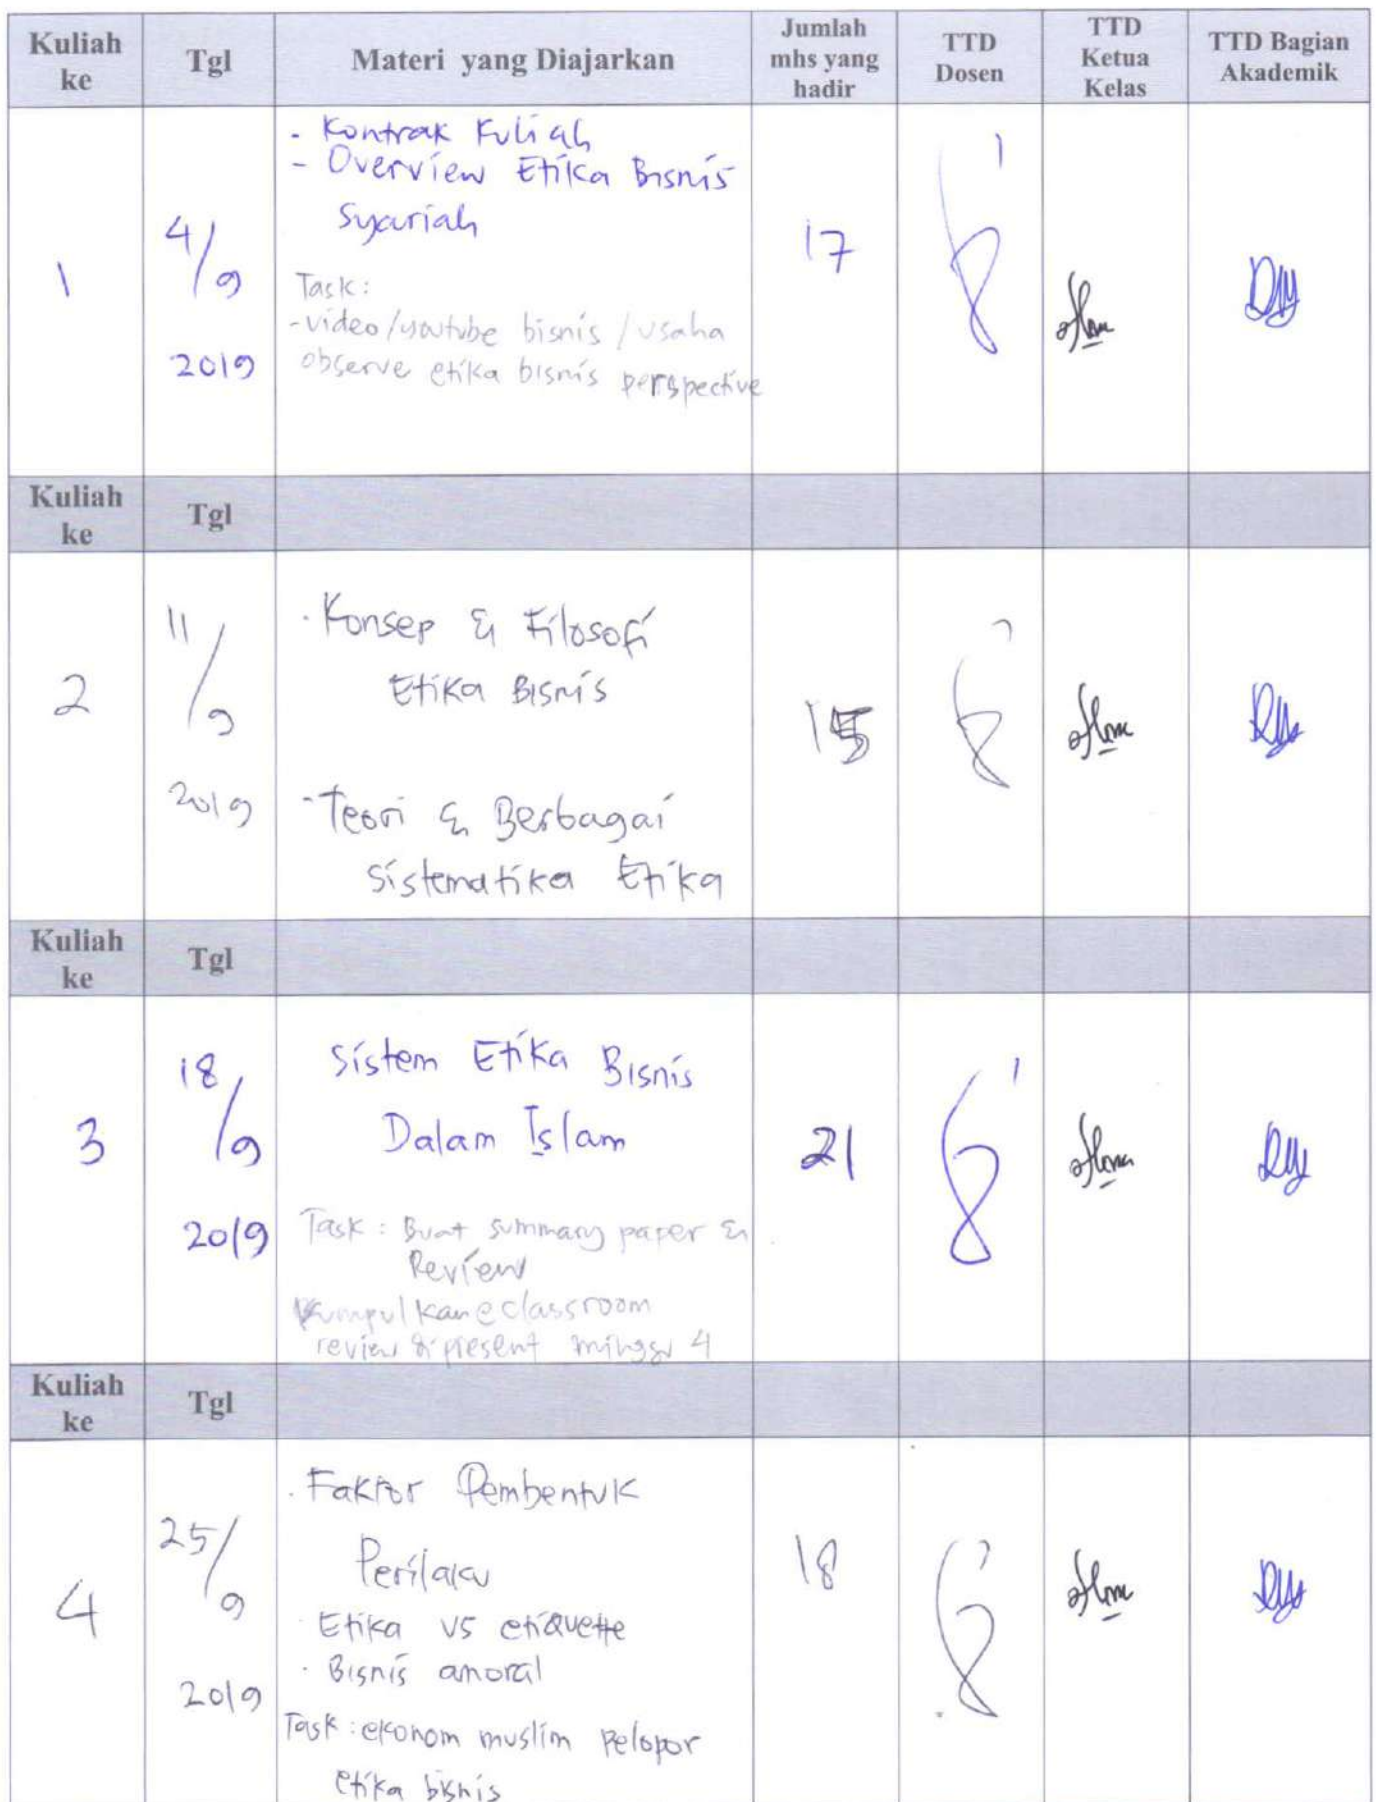 Kuliah ke Tgl Materi yang Diajarkan Jumlah mhs yang hadir TTD Dosen TTD Ketua Kelas TTD Bagian Akademik
1
4/9
2019
- Kontrak Kuliah
- Overview Etika Bisnis
Syariah
Task:
- video/youtube bisnis / usaha
observe etika bisnis perspective
17
Kuliah ke Tgl
2
11/9
2019
- Konsep & Filosofi
Etika Bisnis
- Teori & Berbagai
Sistematika Etika
15
Kuliah ke Tgl
3
18/9
2019
Sistem Etika Bisnis
Dalam Islam
Task : Buat summary paper &
Review
Kumpulkan eclassroom
review & present minggu 4
21
Kuliah ke Tgl
4
25/9
2019
. Faktor Pembentuk
Perilaku
. Etika vs etiquette
. Bisnis amoral
Task : ekonom muslim pelopor
etika bisnis
18